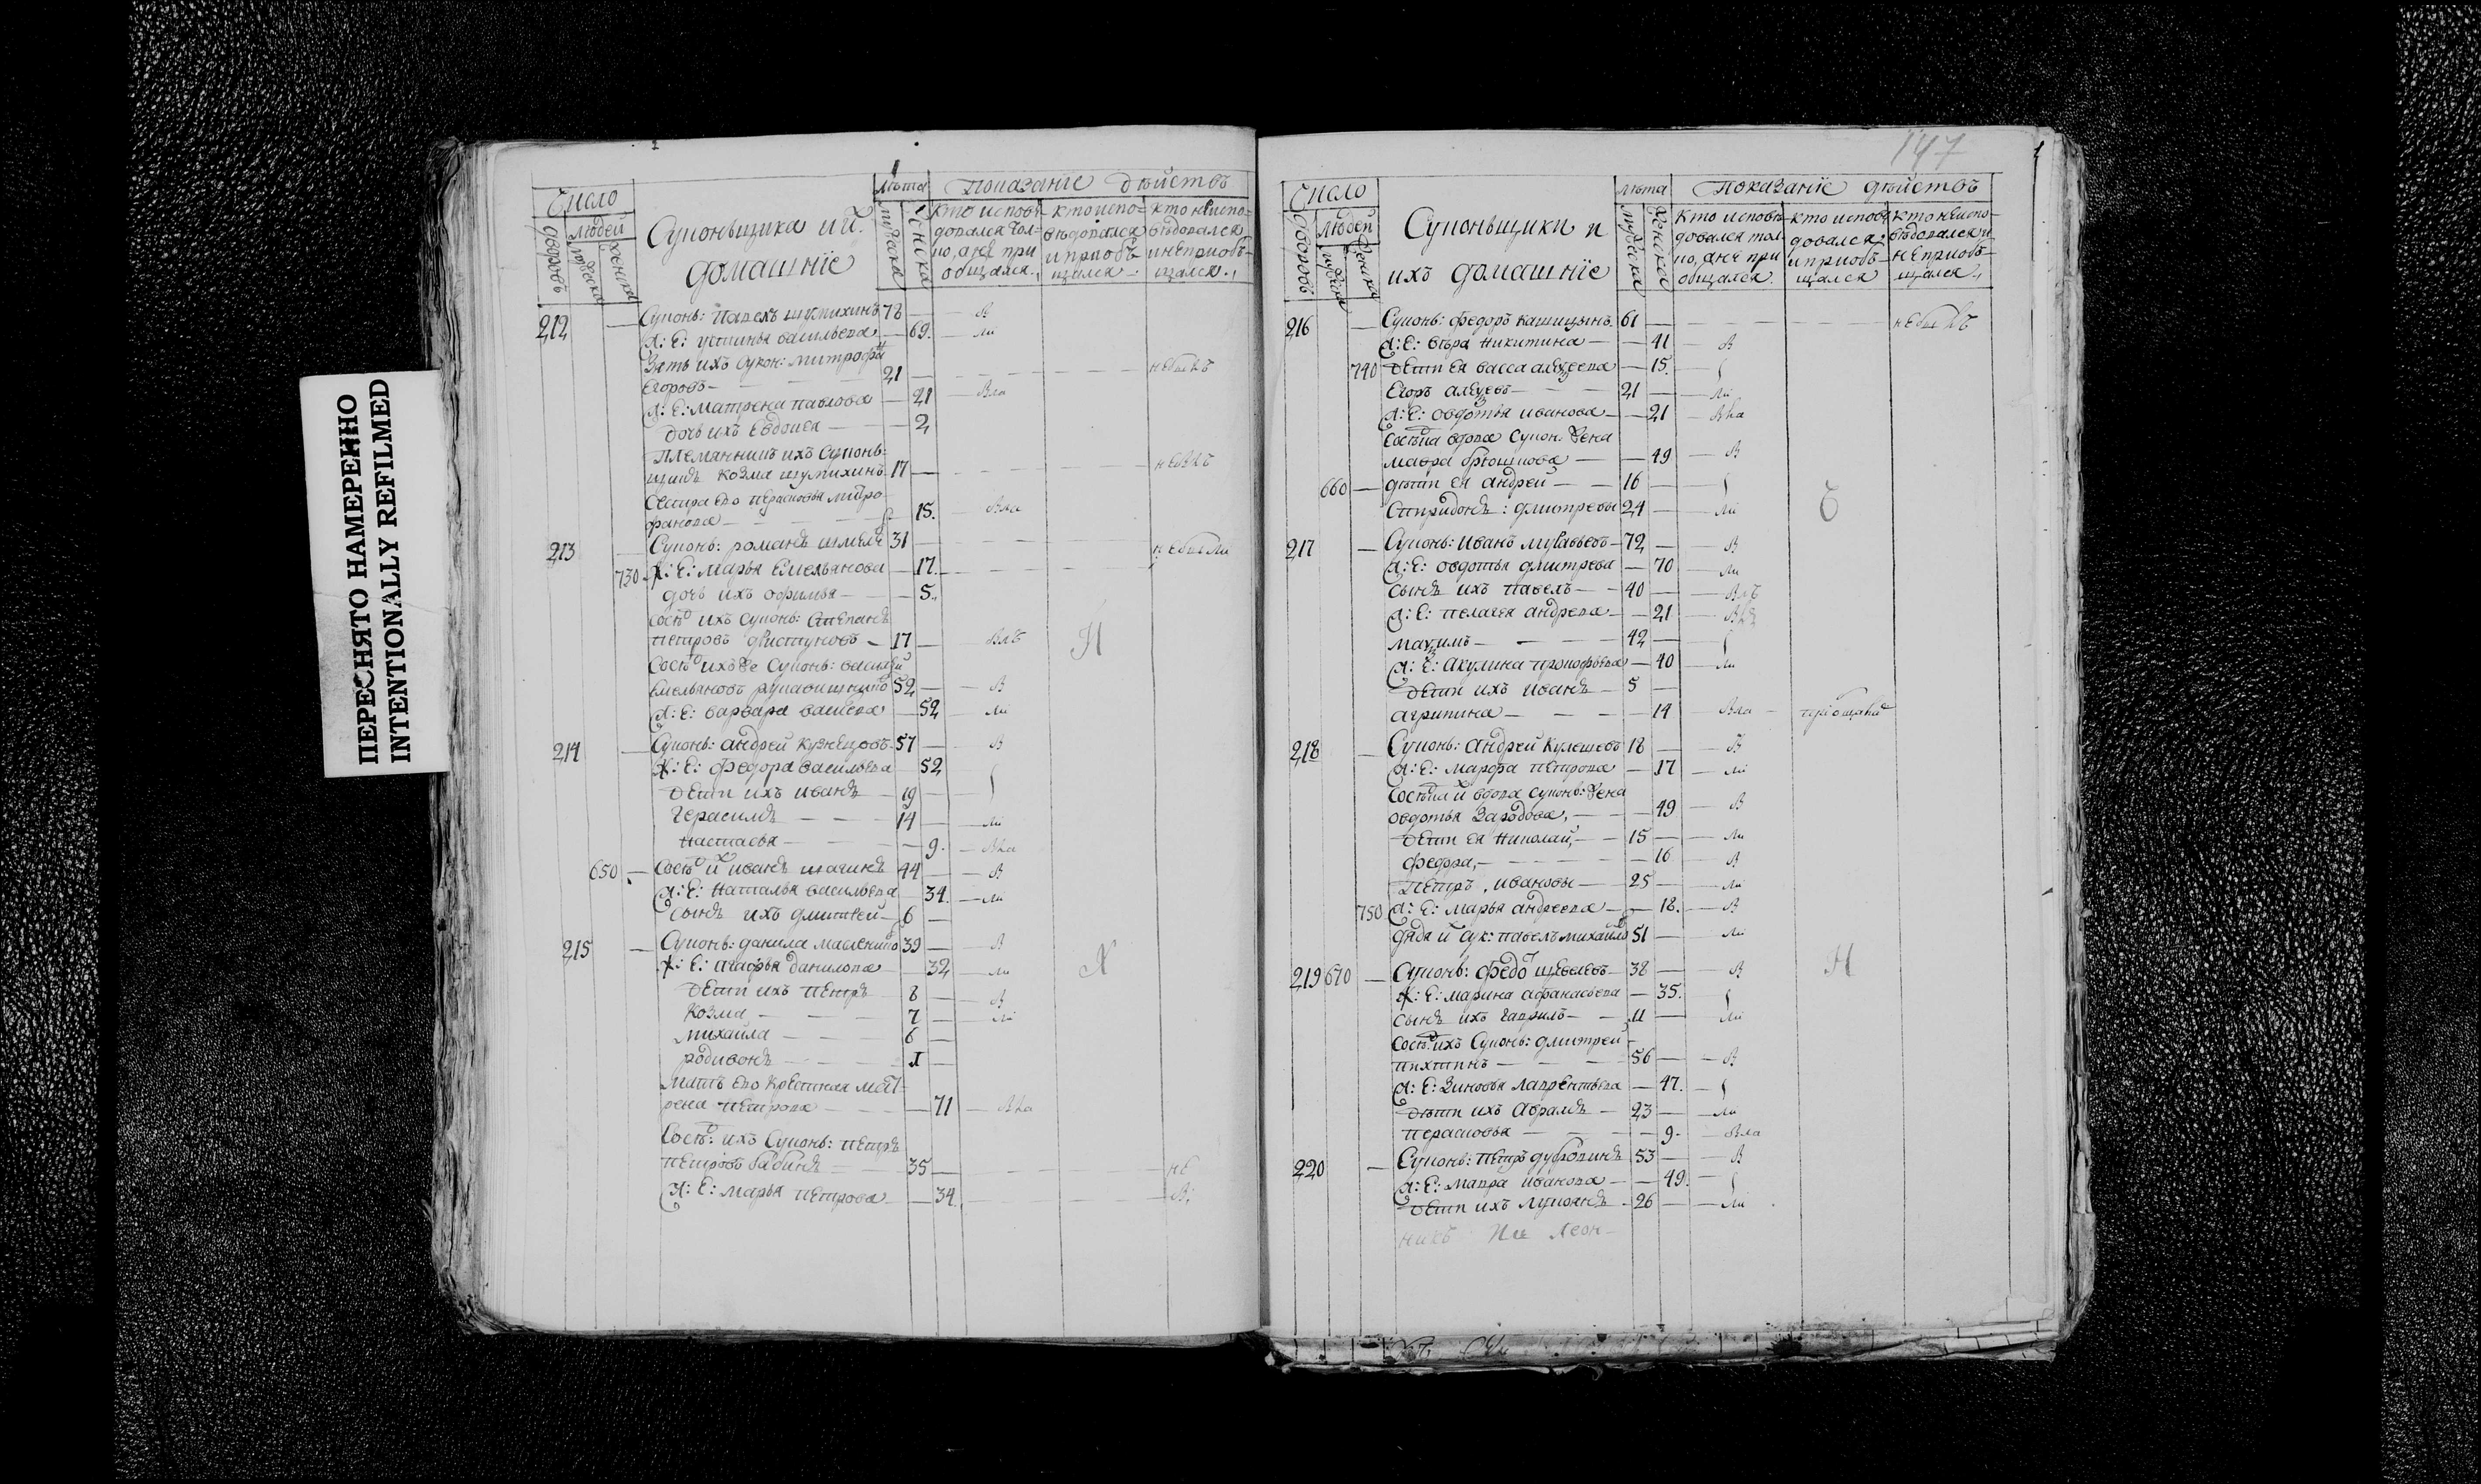 ПЕРЕСНЯТО НАМЕРЕННО
INTENTIONALLY REFILMED
Число
дворовъ людей мужеска женска
Суконьщики и их домашние
лѣта мужеска женска
показание дѣйствъ
кто исповѣдовался тол-
ко, а не при
общался
кто испо-
вѣдовался
и приоб-
щался
кто не испо-
вѣдовался
и не приоб-
щался
212 Суконь: Павелъ шумихинъ 78 в
Ж: Е: устинья васильева 69 ли
Зять ихъ сукон: митрофа
Егоровъ 21 небылъ
Ж: Е: матрена павлова 21 вла
дочь ихъ Евдокея 2
племянникъ ихъ суконь-
щикъ козма шумихинъ 17 небылъ
Сестра Его перасковья митро-
фанова 15 вла
213 Суконь: романъ 31 небыли
730 Ж: Е: марья Емельянова 17
дочь ихъ офимья 5
Сосѣд ихъ суконь: Степанъ
петровъ 17 влъ Н
Сосѣд ихъ же Суконь: василей
Емельяновъ 52 в
Ж: Е: варвара 52 ли
214 Суконь: андрей кузнецовъ 57 в
Ж: Е: федора васильева 52
дети ихъ иванъ 19
герасимъ 14 ли
настасья 9 вла
650 Сосѣд их иванъ шагинъ 44 в
Ж: Е: наталья васильева 34 ли
сынъ ихъ дмитрей 6
215 Суконь: данила 39 в
Ж: Е: агафья данилова 32 ли
дети ихъ петръ 8 в
козма 7 ли
михаила 6
родивонъ 1
мать Его крестная мат-
рена петрова 71 вла
Сосѣд: ихъ Суконь: петръ
петровъ бабинъ 35 не
Ж: Е: марья петрова 34
147
Число
дворовъ людей мужеска женска
Суконьщики и
ихъ домашние
лѣта мужеска женска
показание дѣйствъ
кто исповѣ-
довался тол-
ко, а не при
общался
кто исповѣ
довался
и приоб-
щался
кто не испо-
вѣдовался и
не приоб-
щался
216 Суконь: федоръ кашицынъ 61 небылъ
Ж: Е: вѣра никитина 41 в
740 дети Ея васса алеѯеева 15
Егоръ алеѯеевъ 21 ли
Ж: Е: овдотья иванова 21 вла
Сосѣдка вдова сукон: жена
мавра 49 в
660 дѣти ея андрей 16
Спридонъ: дмитревы 24 ли
217 Суконь: иванъ муравьевъ 72 в
Ж: Е: овдотья дмитрева 70 ли
сынъ ихъ павелъ 40 влъ
Ж: Е: пелагея андрева 21
маѯимъ 42
Ж: Е: акулина прокофьева 40 ли
дети ихъ иванъ 5
агрипина 14 вла
218 Суконь: андрей кулешовъ 18 в
Ж: Е: марфа петрова 17 ли
Сосѣдка их вдова суконь: жена
овдотья 49 в
дети ея николай 15 ли
федора 16 в
петръ, ивановы 25 ли
750 Ж: Е: марья андреева 18 в
дядя их сук: павелъ михайло 51 ли
219 670 Суконь: федо 38 в Н
Ж: Е: марина афанасьева 35
сынъ ихъ гаврилъ 11 ли
Сосѣд ихъ Суконь: дмитрей
никитинъ 56 в
Ж: Е: зиновья лаврентьева 47
дѣти ихъ аврамъ 23 ли
перасковья 9 вла
220 Суконь: петръ 53 в
Ж: Е: мавра иванова 49
дети ихъ лукоянъ 26 ли